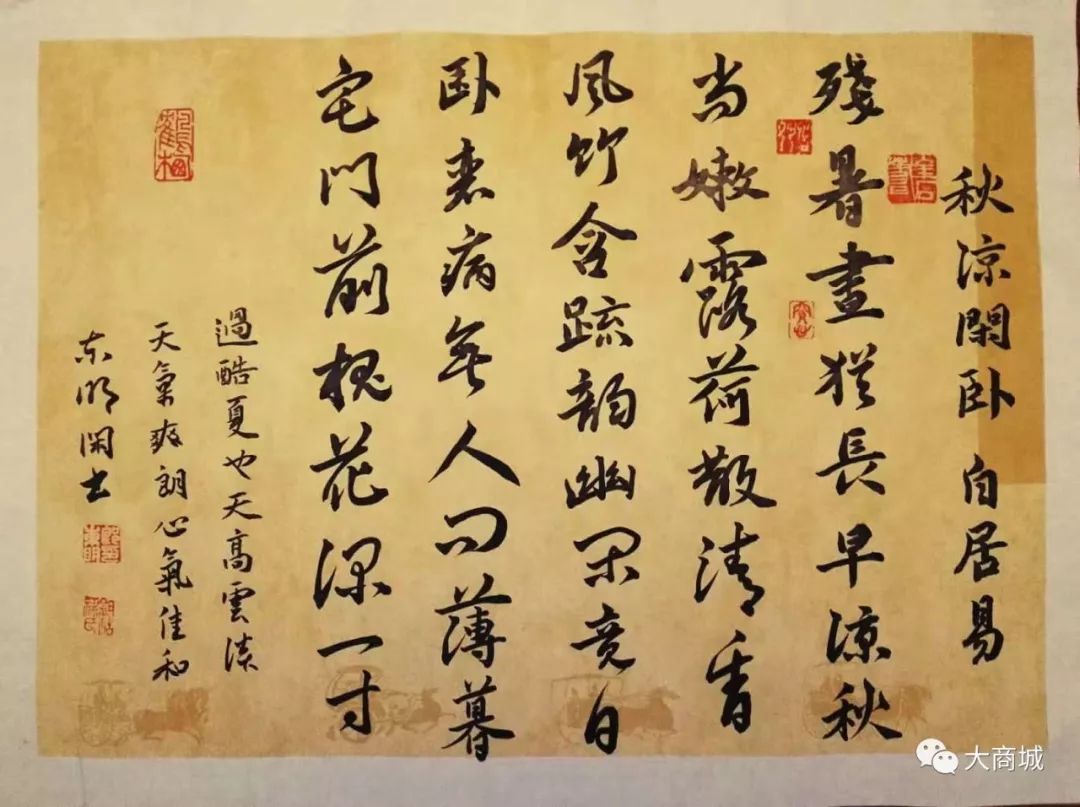 秋涼閑卧 白居易
殘暑晝猶長早涼秋
尚嫩露荷散清香
風竹含疏韵幽閑竟日
卧衰病無人問薄暮
宅門前槐花深一寸
過酷夏也天高雲淡
天氣爽朗心氣佳和
东明闲士
大商城